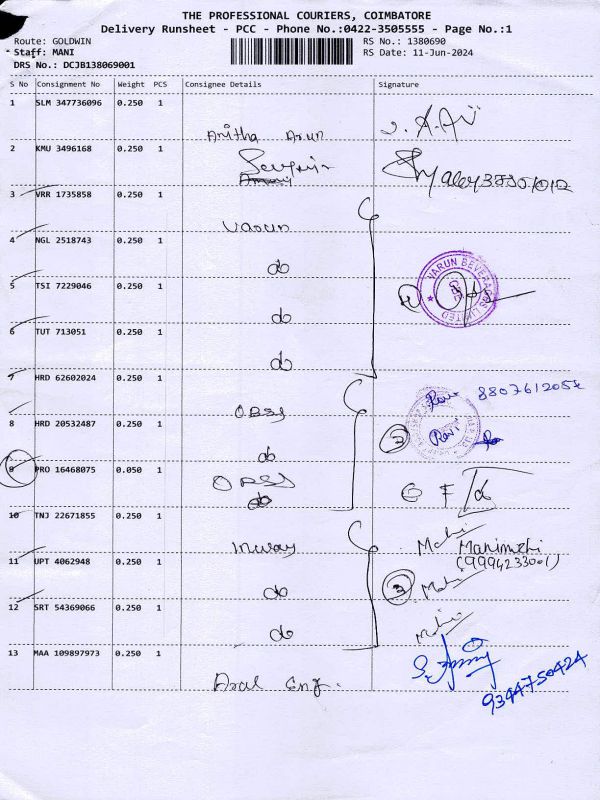 THE PROFESSIONAL COURIERS, COIMBATORE
Delivery Runsheet - PCC - Phone No.:0422-3505555 - Page No.:1
Route: GOLDWIN RS No.: 1380690
Staff: MANI RS Date: 11-Jun-2024
DRS No.: DCJB138069001
S No Consignment No Weight PCS Consignee Details Signature
1 SLM 347736096 0.250 1
Anitha Arun
2 KMU 3496168 0.250 1
3 VRR 1735858 0.250 1
Varun
4 NGL 2518743 0.250 1
do
5 TSI 7229046 0.250 1 VARUN BEVERAGES LIMITED
do
6 TUT 713051 0.250 1
do
7 HRD 62602024 0.250 1 Ravi 8807612057
OBSJ
8 HRD 20532487 0.250 1 3 Ravi
do
9 PRO 16468075 0.050 1
OBSJ
do
10 TNJ 22671855 0.250 1 Mahi
Manimozhi
(9994233001)
11 UPT 4062948 0.250 1 3 Mahi
do
12 SRT 54369066 0.250 1 Mahi
do
13 MAA 109897973 0.250 1
Aral Eng.
9344750424